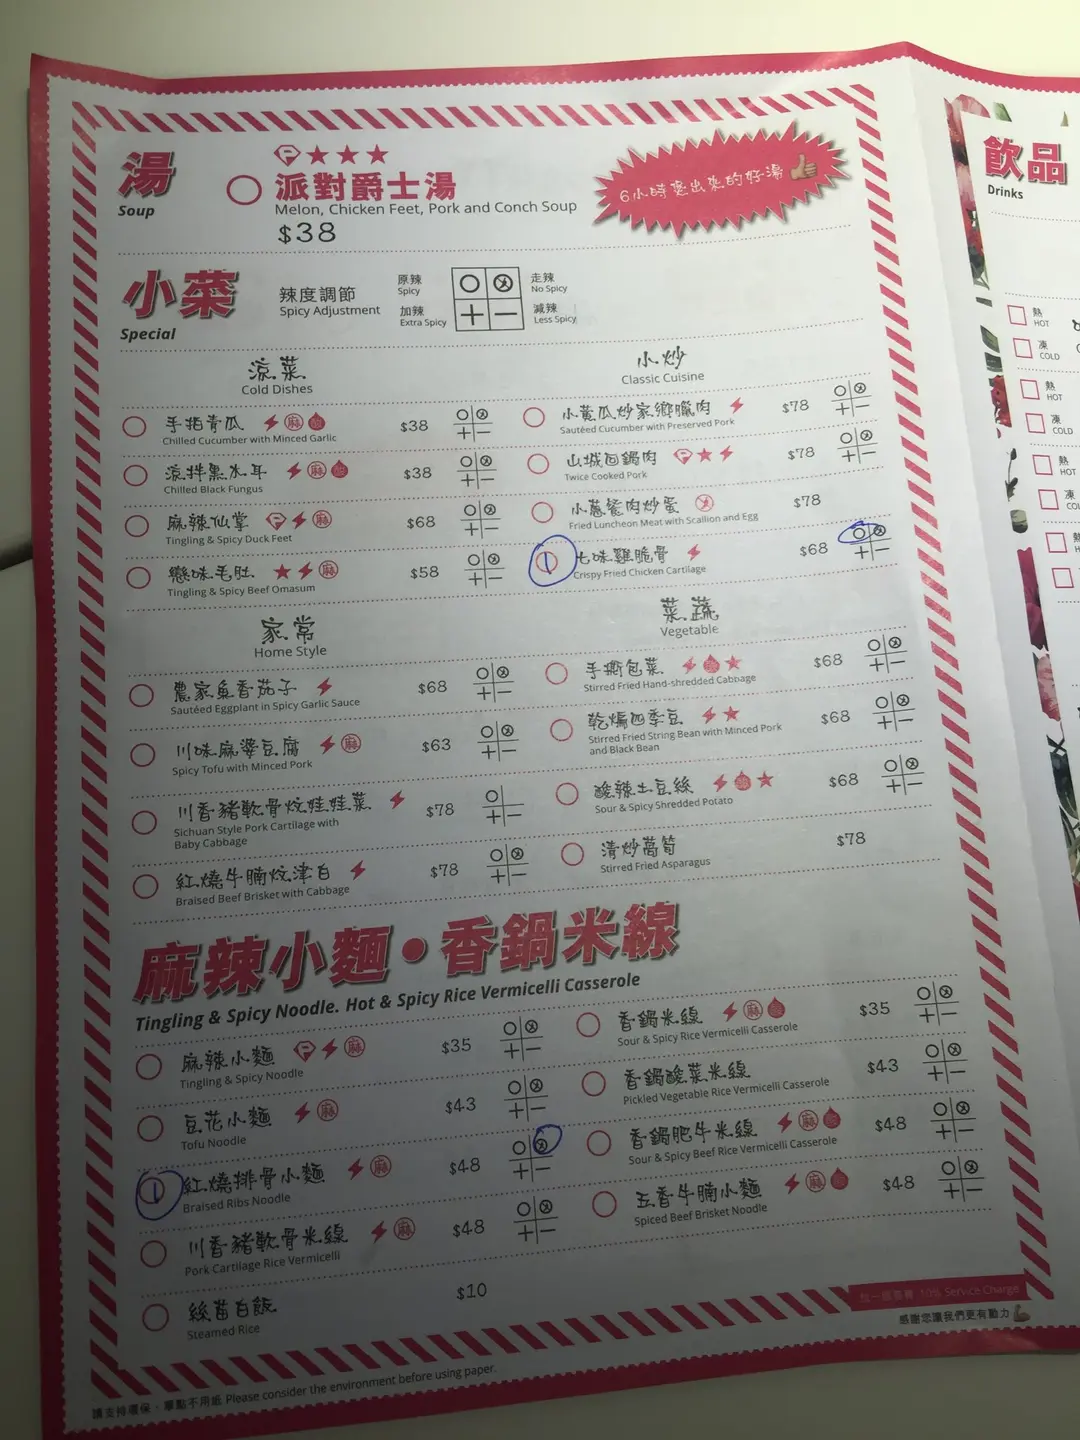 湯
Soup
派對爵士湯
Melon, Chicken Feet, Pork and Conch Soup
$38
6小時煲出來的好湯
小菜
Special
辣度調節
Spicy Adjustment
原辣
Spicy
走辣
No Spicy
加辣
Extra Spicy
減辣
Less Spicy
涼菜
Cold Dishes
手拍青瓜 麻
$38
Chilled Cucumber with Minced Garlic
涼拌黑木耳 麻
$38
Chilled Black Fungus
麻辣仙掌 麻
$68
Tingling & Spicy Duck Feet
戀味毛肚 麻
$58
Tingling & Spicy Beef Omasum
小炒
Classic Cuisine
小黃瓜炒家鄉臘肉
$78
Sautéed Cucumber with Preserved Pork
山城回鍋肉
$78
Twice Cooked Pork
小蔥餐肉炒蛋
$78
Fried Luncheon Meat with Scallion and Egg
1
七味雞脆骨
$68
Crispy Fried Chicken Cartilage
家常
Home Style
農家魚香茄子
$68
Sautéed Eggplant in Spicy Garlic Sauce
川味麻婆豆腐 麻
$63
Spicy Tofu with Minced Pork
川香豬軟骨炆娃娃菜
$78
Sichuan Style Pork Cartilage with
Baby Cabbage
紅燒牛腩炆津白
$78
Braised Beef Brisket with Cabbage
菜蔬
Vegetable
手撕包菜
$68
Stirred Fried Hand-shredded Cabbage
乾煸四季豆
$68
Stirred Fried String Bean with Minced Pork
and Black Bean
酸辣土豆絲
$68
Sour & Spicy Shredded Potato
清炒萵筍
$78
Stirred Fried Asparagus
麻辣小麵•香鍋米線
Tingling & Spicy Noodle. Hot & Spicy Rice Vermicelli Casserole
麻辣小麵 麻
$35
Tingling & Spicy Noodle
豆花小麵 麻
$43
Tofu Noodle
1
紅燒排骨小麵 麻
$48
Braised Ribs Noodle
川香豬軟骨米線 麻
$48
Pork Cartilage Rice Vermicelli
絲苗白飯
$10
Steamed Rice
香鍋米線 麻
$35
Sour & Spicy Rice Vermicelli Casserole
香鍋酸菜米線
$43
Pickled Vegetable Rice Vermicelli Casserole
香鍋肥牛米線 麻
$48
Sour & Spicy Beef Rice Vermicelli Casserole
五香牛腩小麵 麻
$48
Spiced Beef Brisket Noodle
10% Service Charge
感謝您讓我們更有動力
請支持環保，單點不用紙 Please consider the environment before using paper.
飲品
Drinks
熱
HOT
凍
COLD
熱
HOT
凍
COLD
熱
HOT
凍